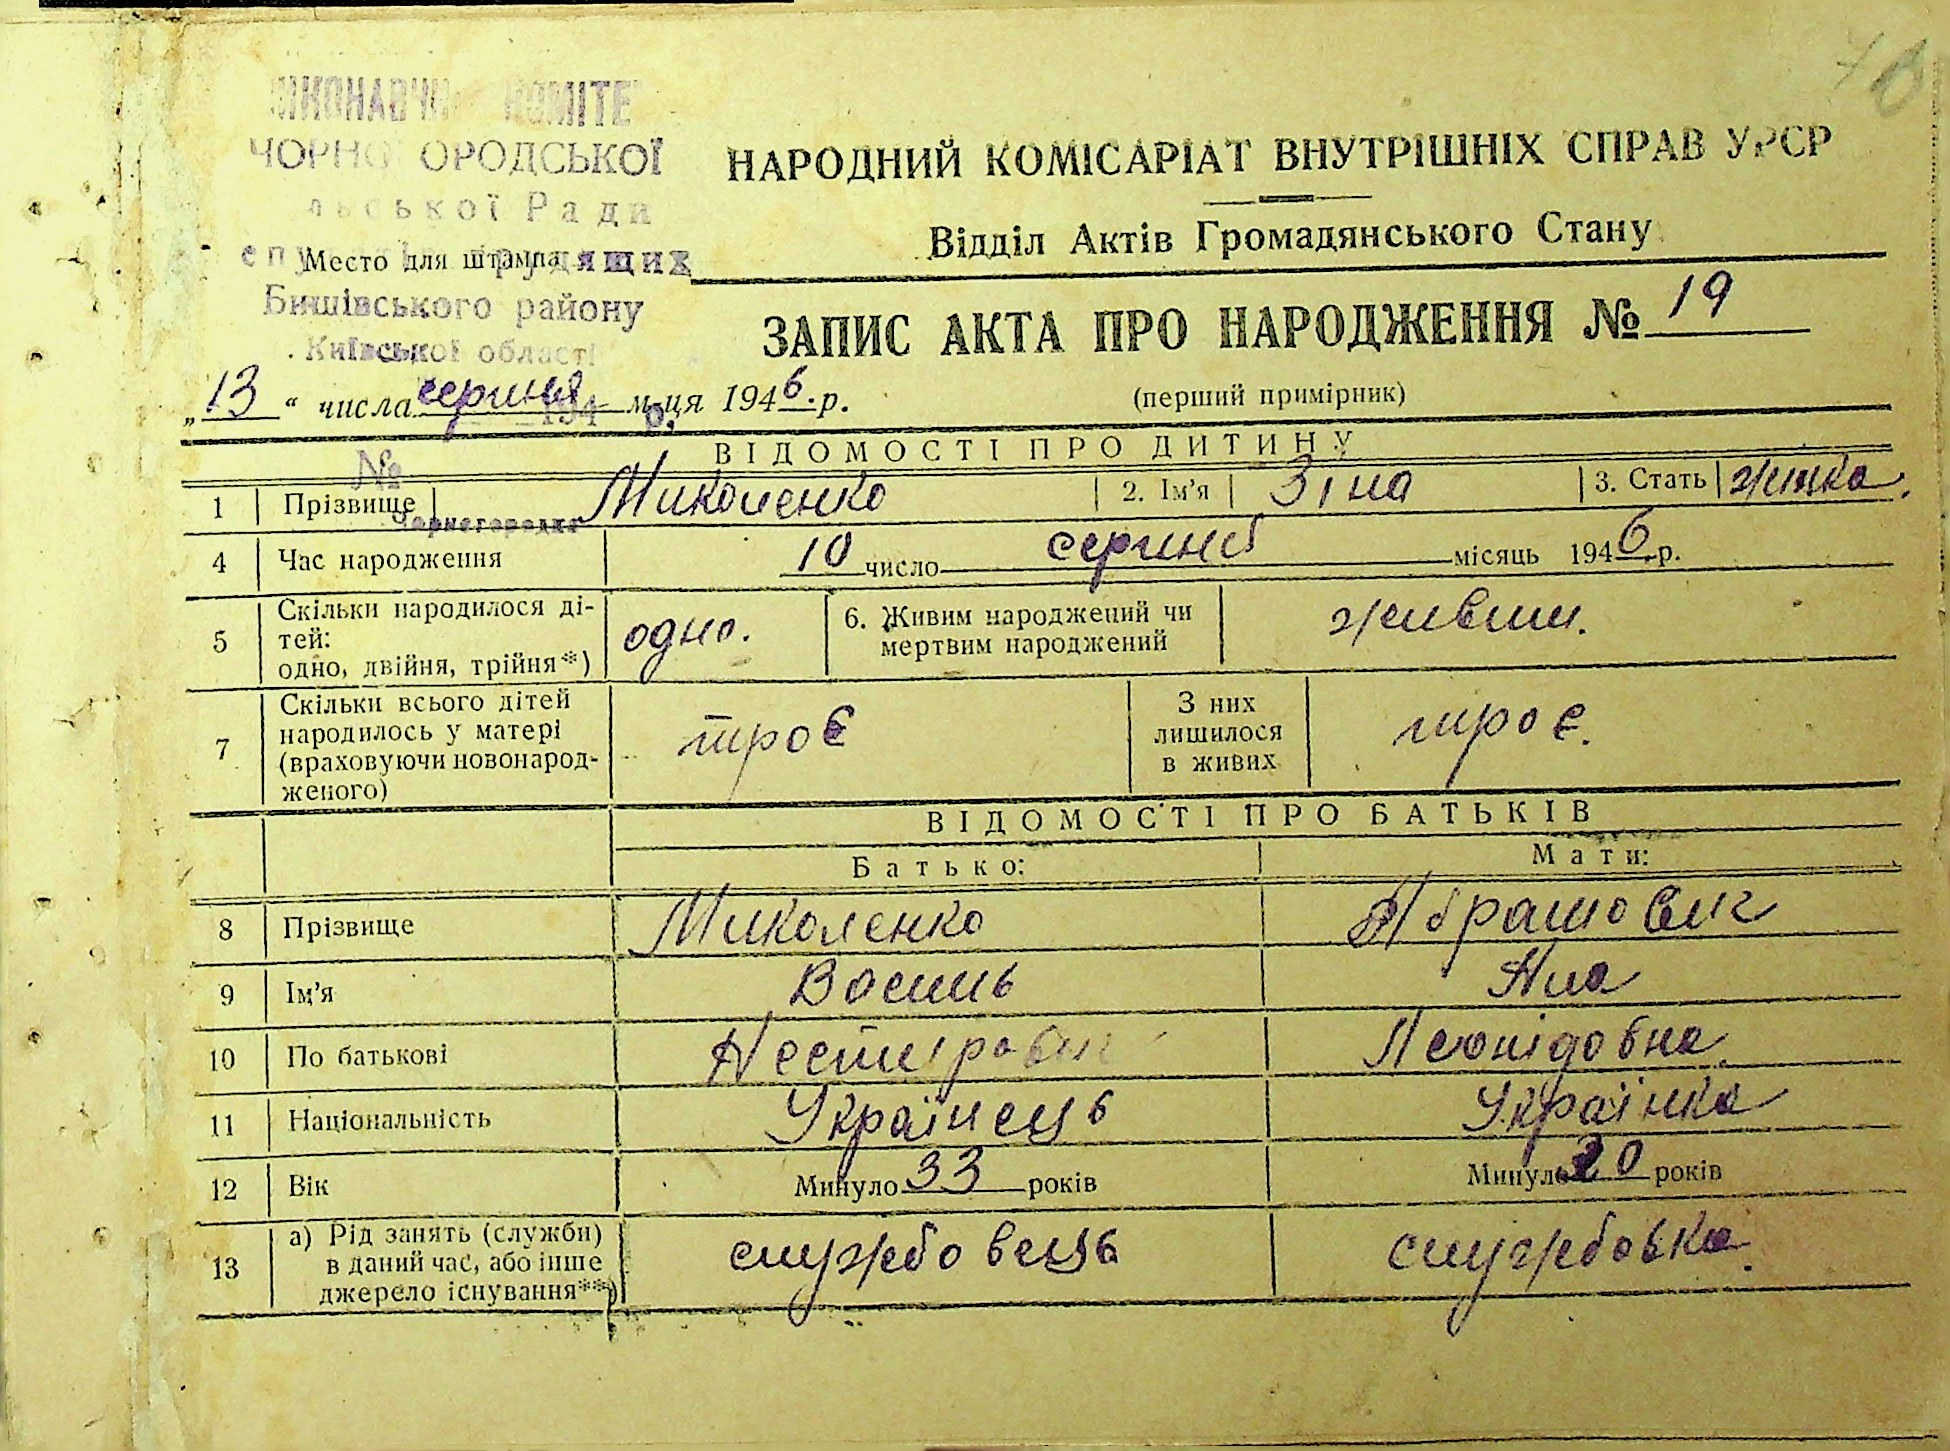 КОМІТЕ
ЧОРНОГОРОДСЬКОЇ
Ради
Место для штампа
Бишівського району
Київської області
НАРОДНИЙ КОМІСАРІАТ ВНУТРІШНІХ СПРАВ УРСР
Відділ Актів Громадянського Стану
ЗАПИС АКТА ПРО НАРОДЖЕННЯ № 19
(перший примірник)
„13“ числа серпня м-ця 1946.р.
№
ВІДОМОСТІ ПРО ДИТИНУ
1 Прізвище Миколенко 2. Ім'я Зіна 3. Стать жінка.
4 Час народження 10 число серпня місяць 1946.р.
5 Скільки народилося ді-
тей:
одно, двійня, трійня*) одно.
6. Живим народжений чи
мертвим народжений живим.
7 Скільки всього дітей
народилось у матері
(враховуючи новонарод-
женого) троє
З них
лишилося
в живих троє.
ВІДОМОСТІ ПРО БАТЬКІВ
Батько: Мати:
8 Прізвище Миколенко Абрамович
9 Ім'я Василь
10 По батькові Леонідовна
11 Національність Українець Українка
12 Вік Минуло 33 років Минуло років
13 а) Рід занять (служби)
в даний час, або інше
джерело існування**) службовець службовка.